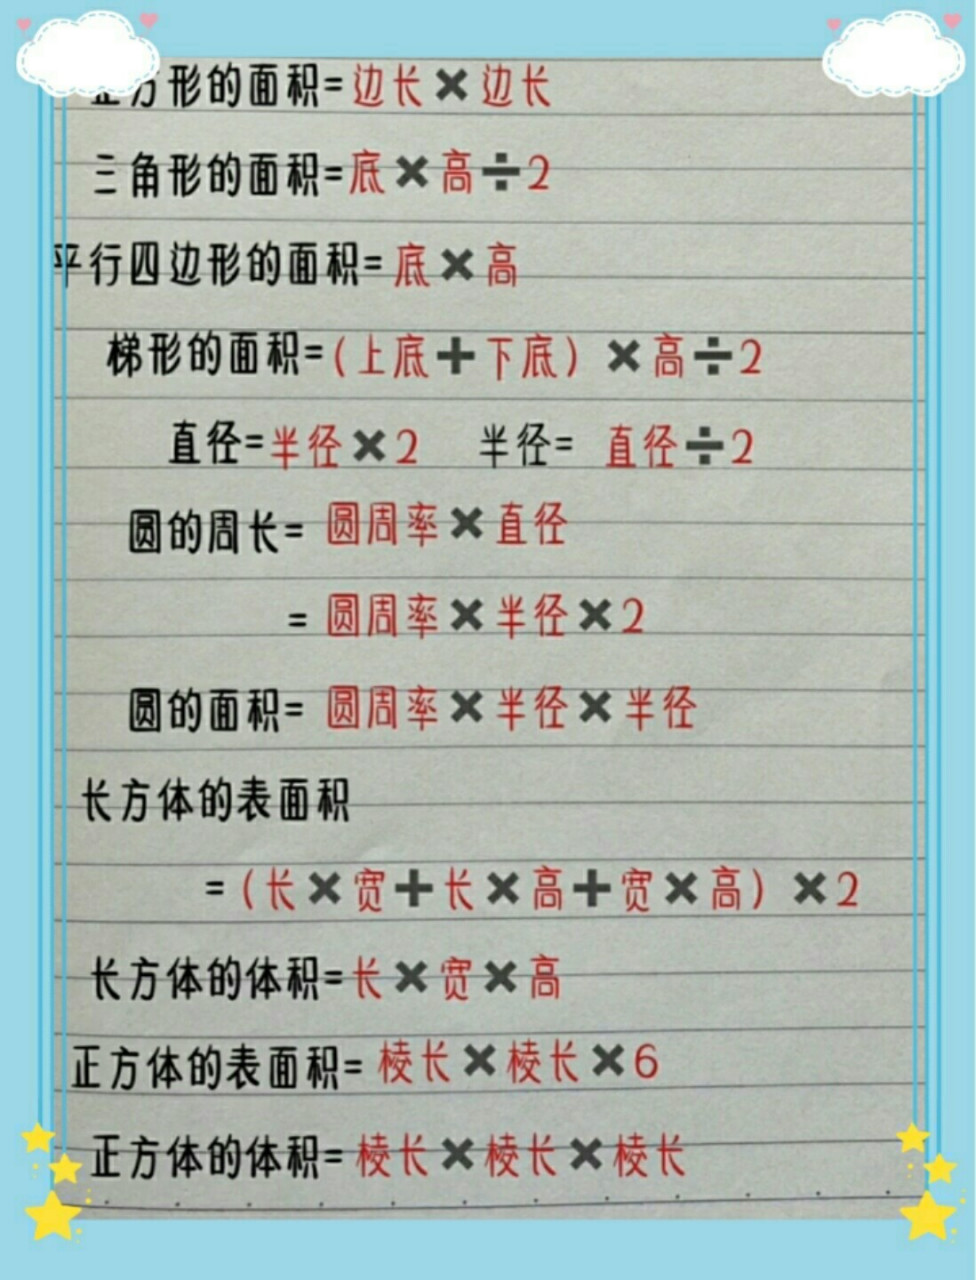 正方形的面积=边长×边长
三角形的面积=底×高÷2
平行四边形的面积=底×高
梯形的面积=(上底+下底)×高÷2
直径=半径×2 半径= 直径÷2
圆的周长= 圆周率×直径
= 圆周率×半径×2
圆的面积= 圆周率×半径×半径
长方体的表面积
=(长×宽+长×高+宽×高)×2
长方体的体积=长×宽×高
正方体的表面积= 棱长×棱长×6
正方体的体积=棱长×棱长×棱长